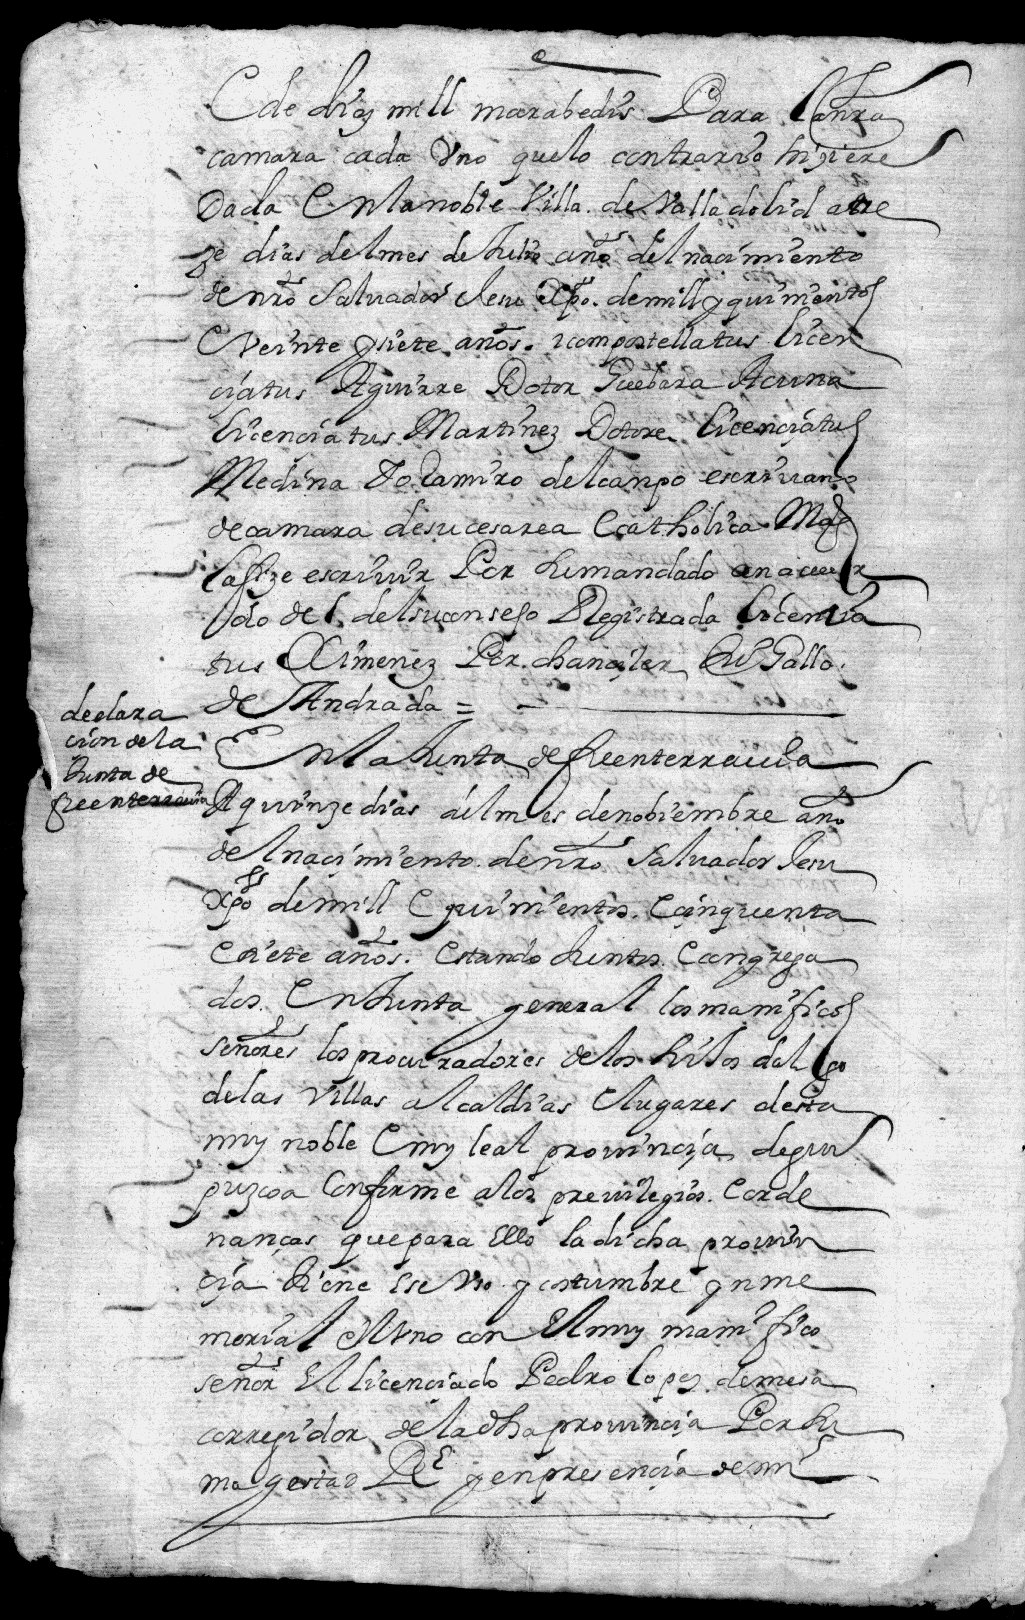 E de diez mill marabedis Para la nra
camara cada Vno que lo contrario hiziere
Dada En la noble Villa de Valladolid a tre
ze dias del mes de Julio año del nacimiento
de nro Salvador Jesu Xpo. de mill y quinientos
E Veinte y siete años. icompostellatus licen
ciatus Aguirre Dotor Guebara Acuna
licenciatus Martinez Dotore licenciatus
Medina Yo Ramiro del canpo escrivano
de camara de su cesarea E catholica Mag
la fize escrivir Por su mandado con acuer
do de l. del su consejo Registrada licencia
tus Ximenez Por chanciler Gallo
de Andrada =
declara
cion de la
Junta de
fuenterravia
En la Junta de fuenterravia
A quinze dias del mes de nobiembre año
del nacimiento de nro Salvador Jesu
Xpo de mill E quinientos E cinquenta
E siete años. Estando Juntos E congrega
dos En Junta general los manificos
señores los procuradores de los hijos dalgo
de las Villas alcaldias E lugares desta
muy noble E muy leal provincia de gui
puzcoa Conforme a los previlegios E orde
nanças que para Ello la dicha provin
cia tiene Ese Vso y costumbre ynme
morial E Vno con El muy manifico
señor El licenciado Pedro lopez de mesa
corregidor de la dha provincia Por su
magestad Rl y en presencia de mi